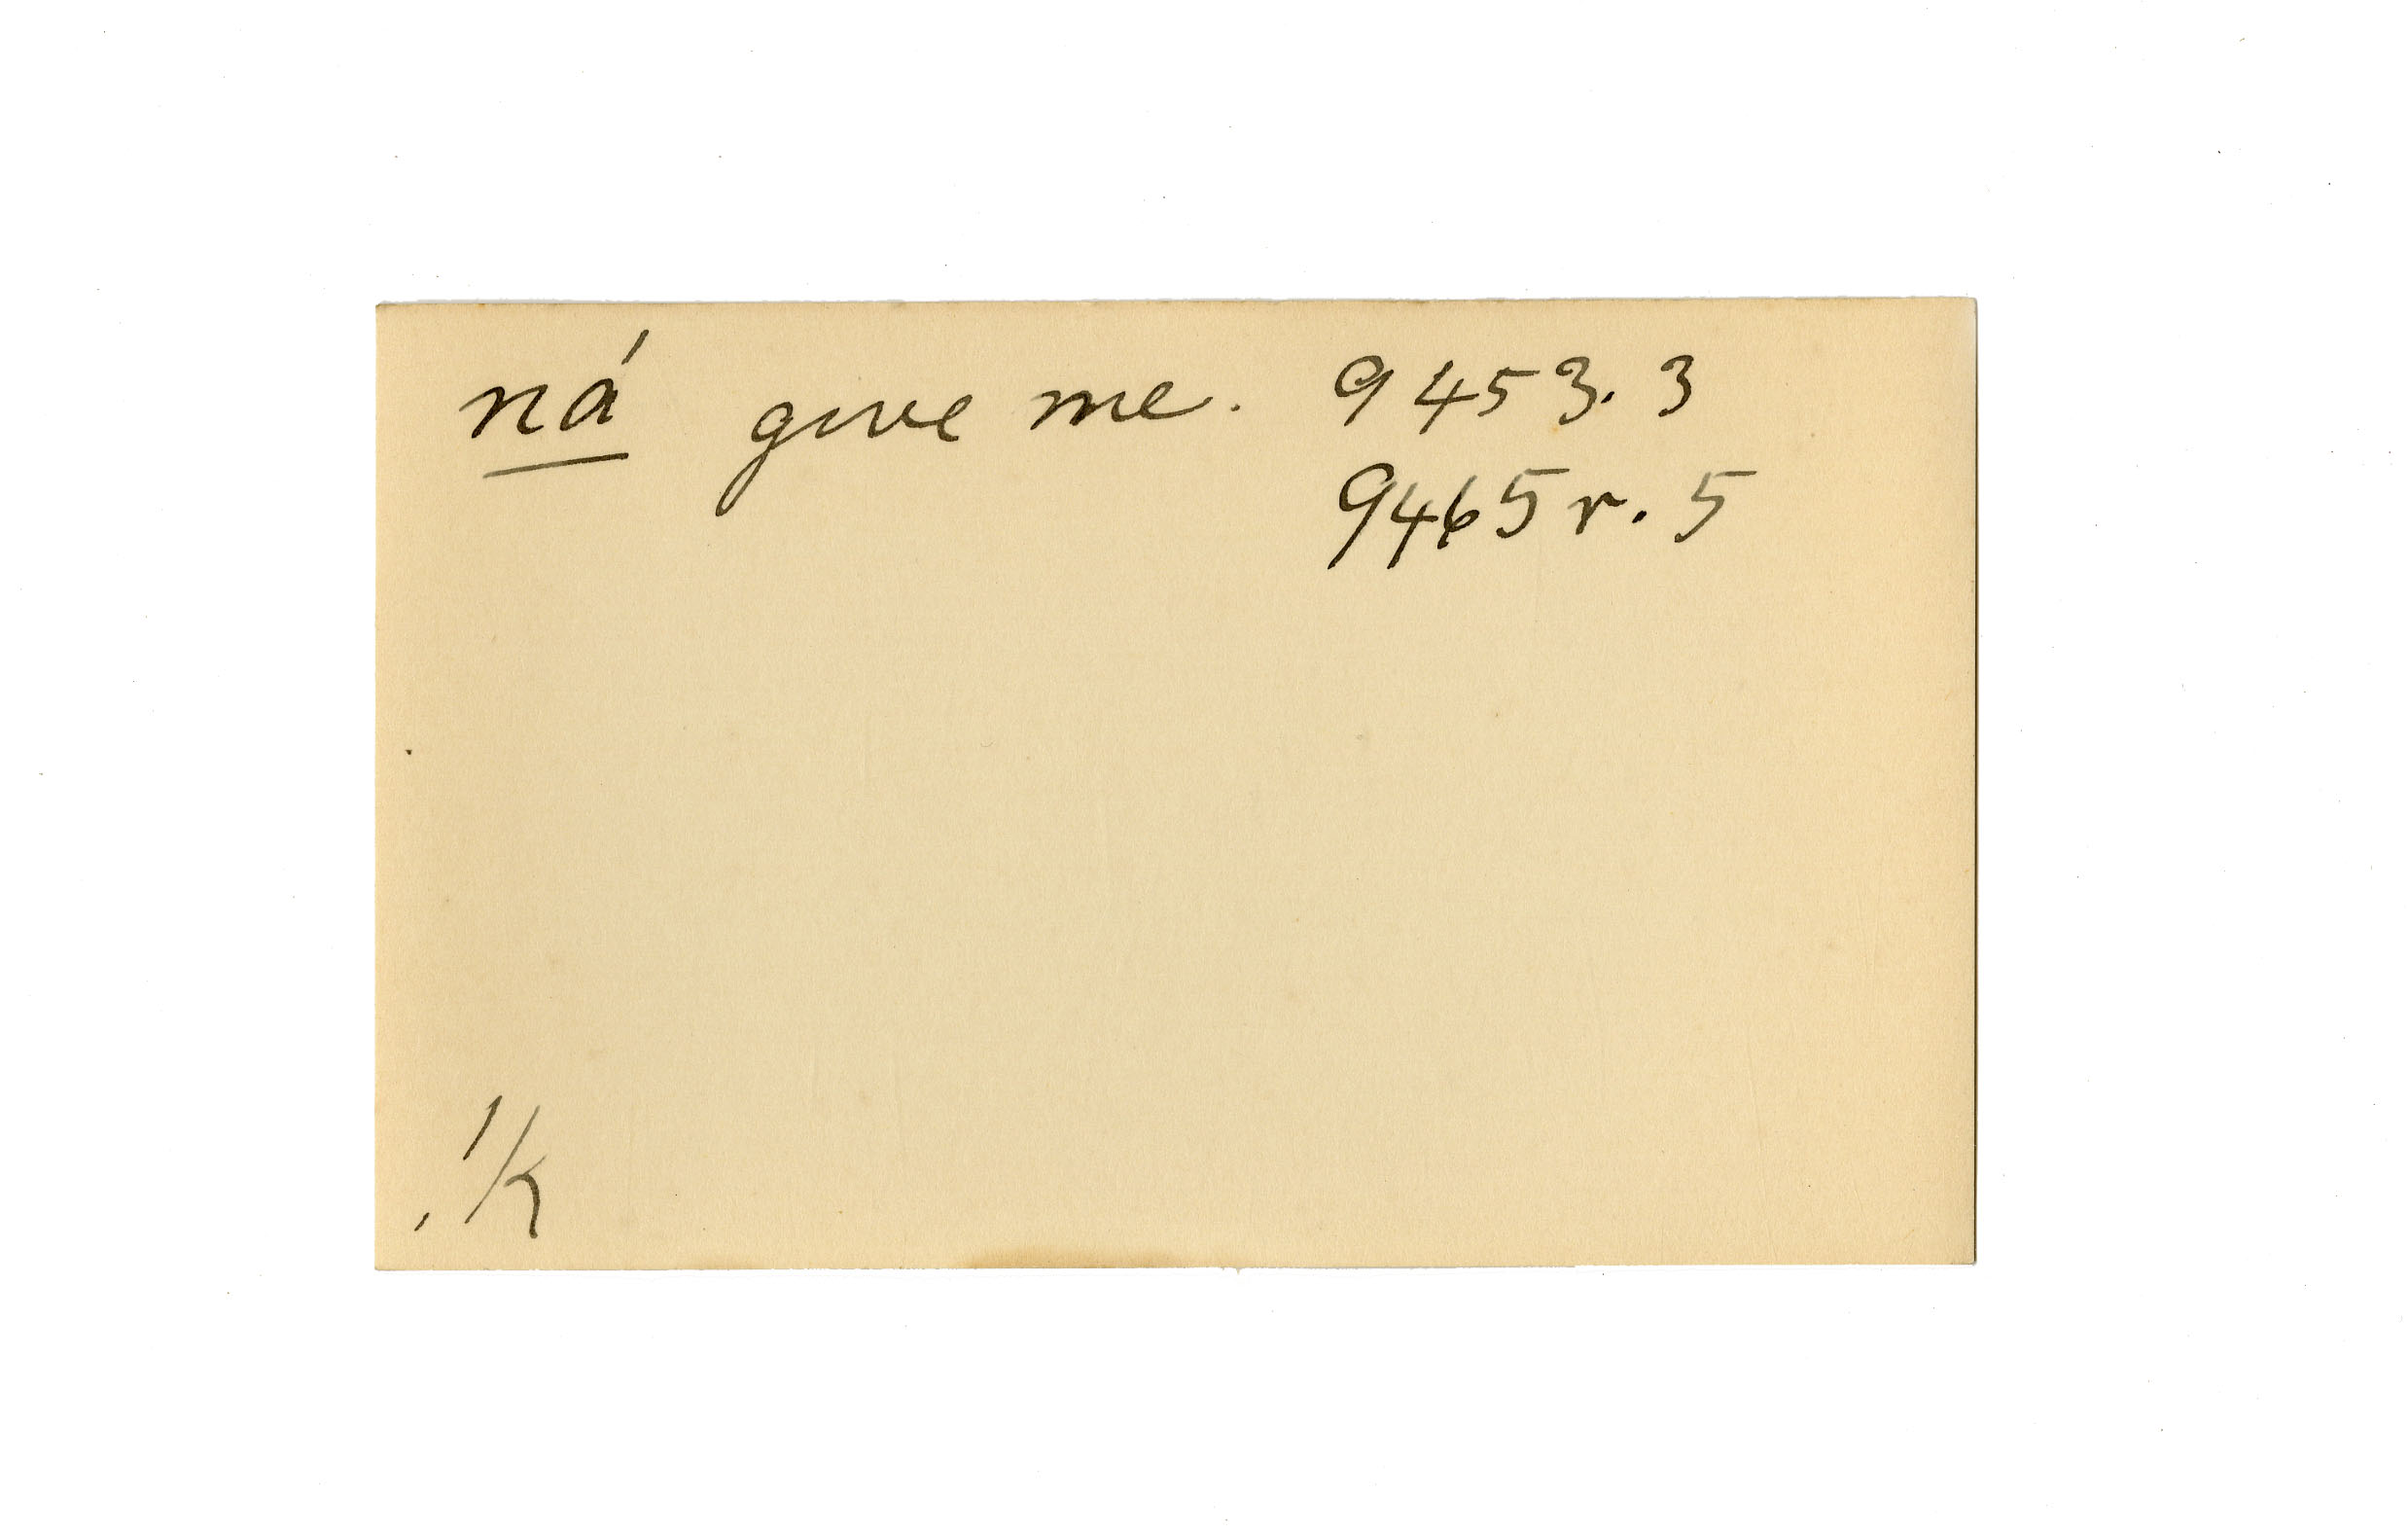 ná give me. 9453.3
9465r.5
1/K